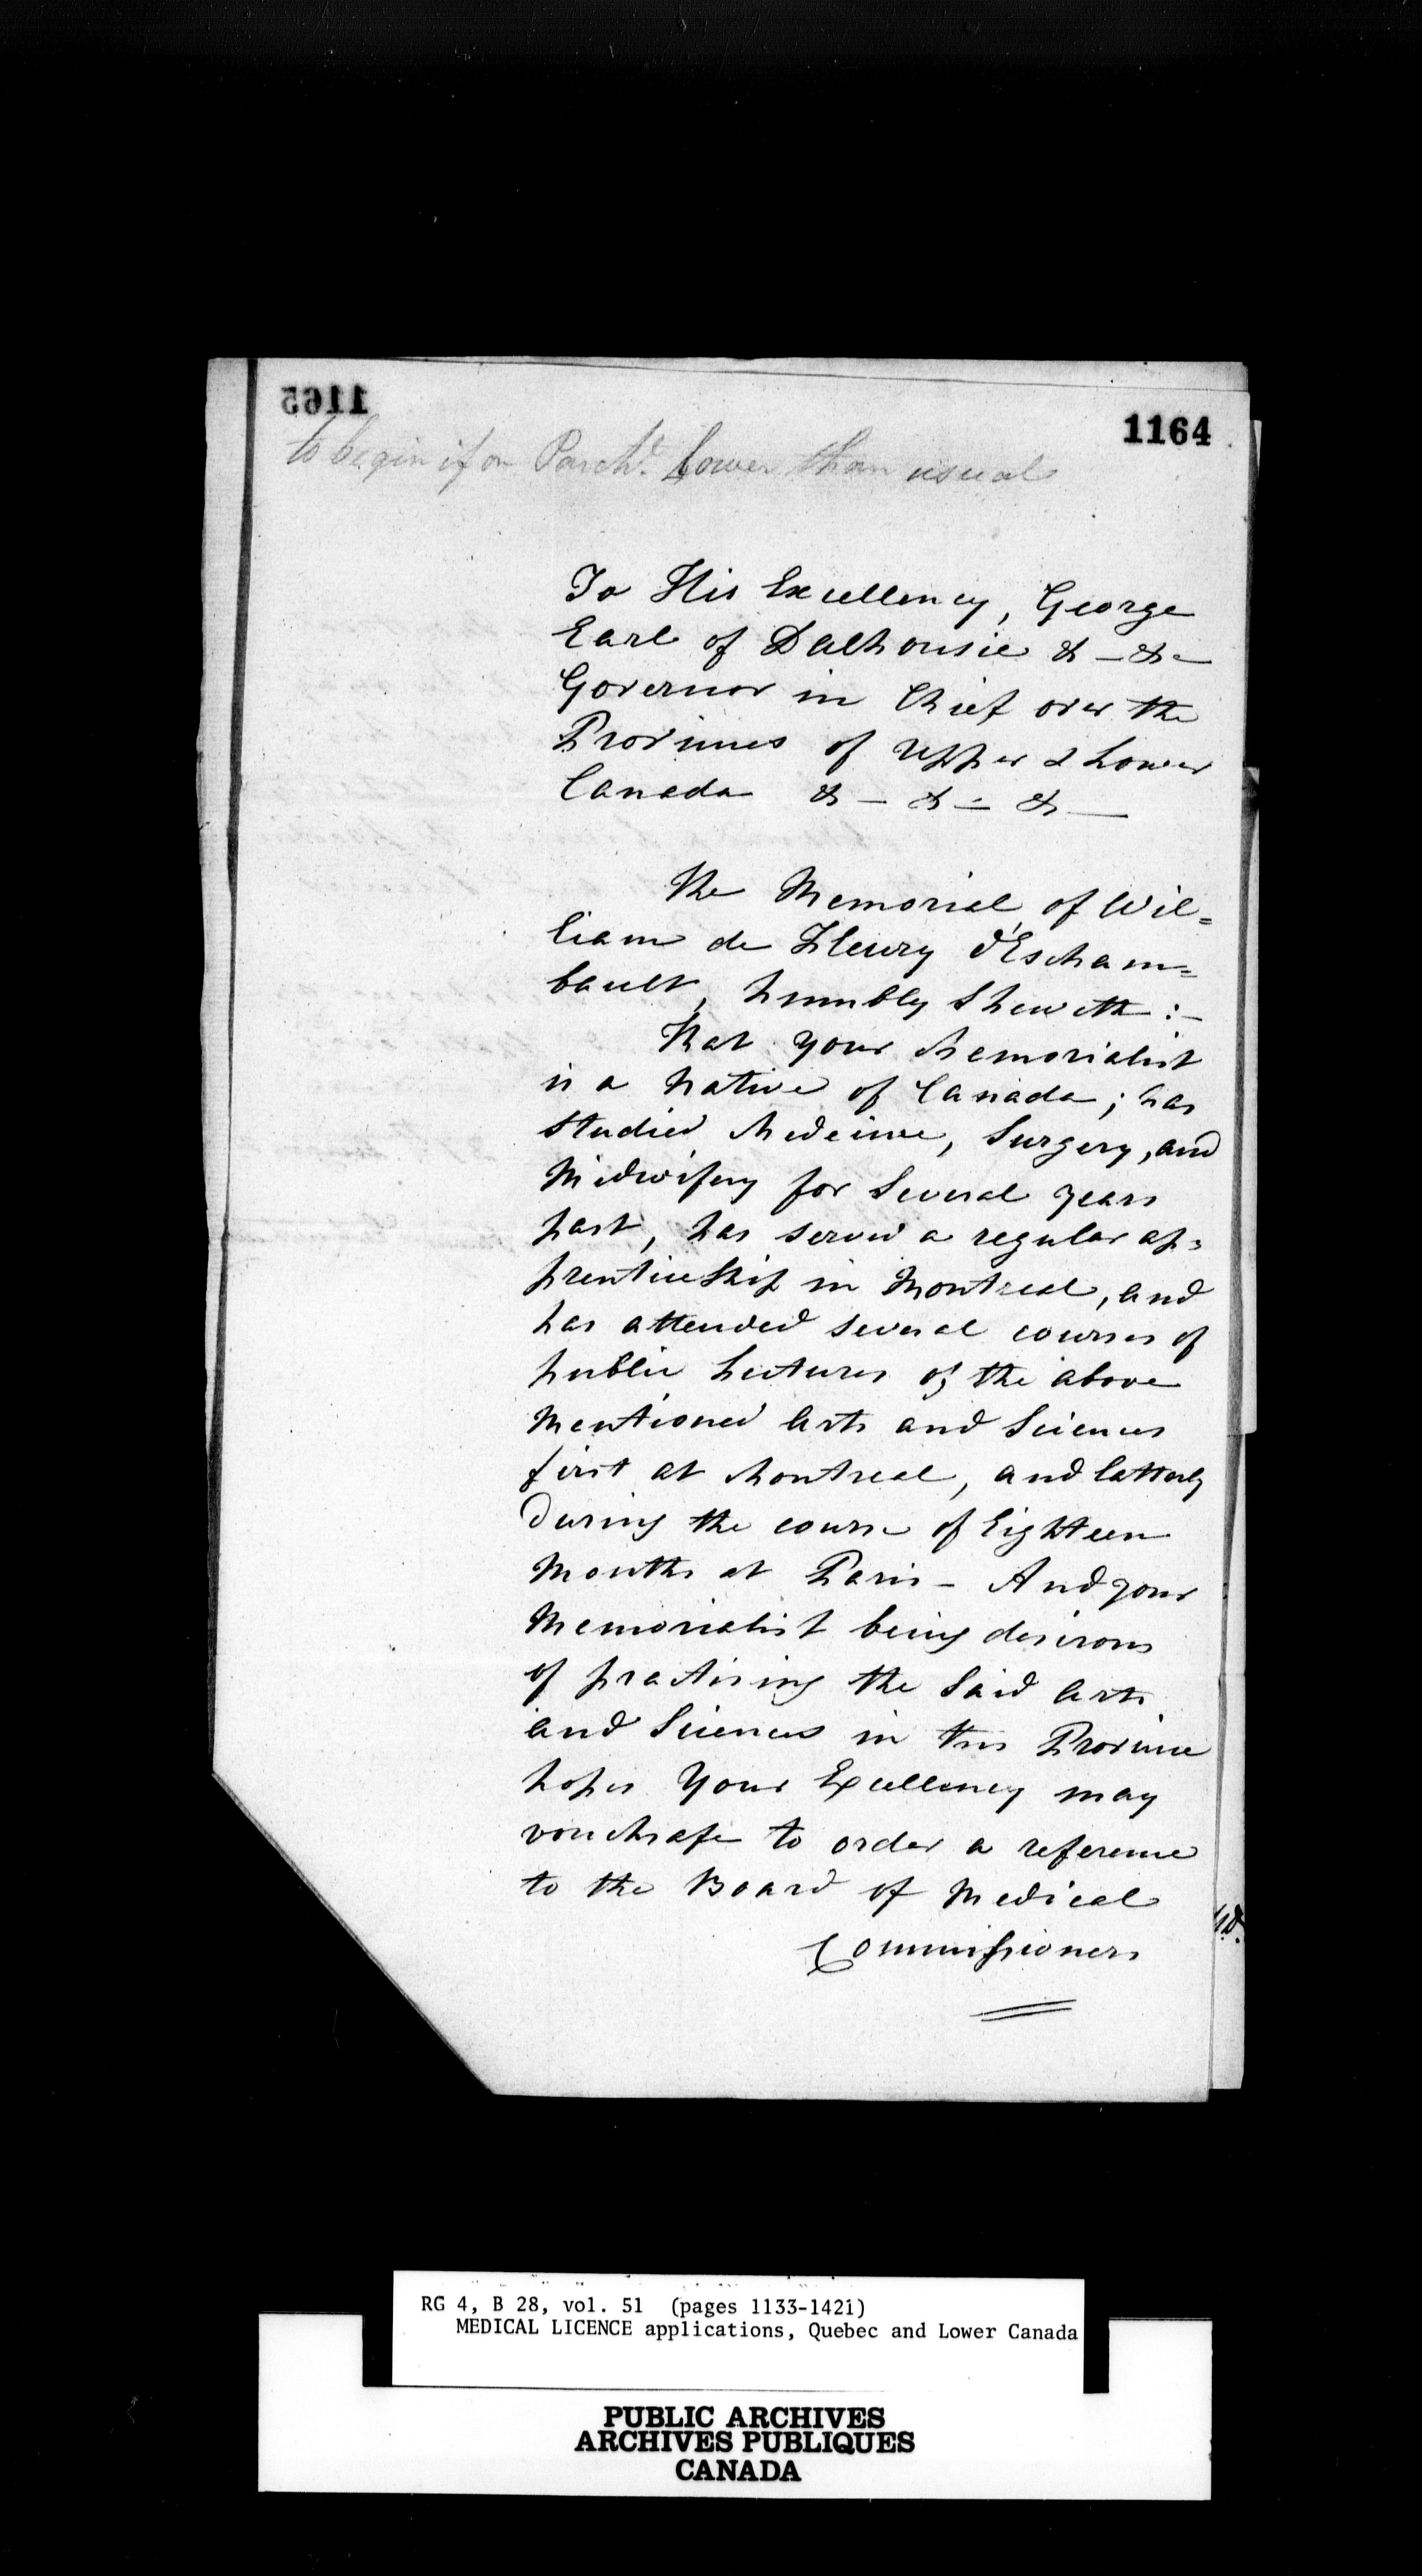 1165
1164
to begin if on Parcht. lower than usual
To His Excellency, George
Earl of Dalhousie & - & -
Governor in Chief over the
Provinces of Upper & Lower
Canada & - & - & -
The Memorial of Wil=
liam de Fleury d'Escham=
bault, humbly Sheweth :-
That your Memorialist
is a Native of Canada; has
studied Medecine, Surgery, and
Midwifery for Several years
past, has served a regular ap=
prenticeship in Montreal, and
has attended several courses of
public Lectures of the above
Mentioned Arts and Sciences
first at Montreal, and latterly
during the course of Eighteen
Months at Paris - And your
Memorialist being desirous
of practising the Said Arts
and Sciences in this Province
hopes Your Excellency may
vouchsafe to order a reference
to the Board of Medical
Commissioners
RG 4, B 28, vol. 51 (pages 1133-1421)
MEDICAL LICENCE applications, Quebec and Lower Canada
PUBLIC ARCHIVES
ARCHIVES PUBLIQUES
CANADA